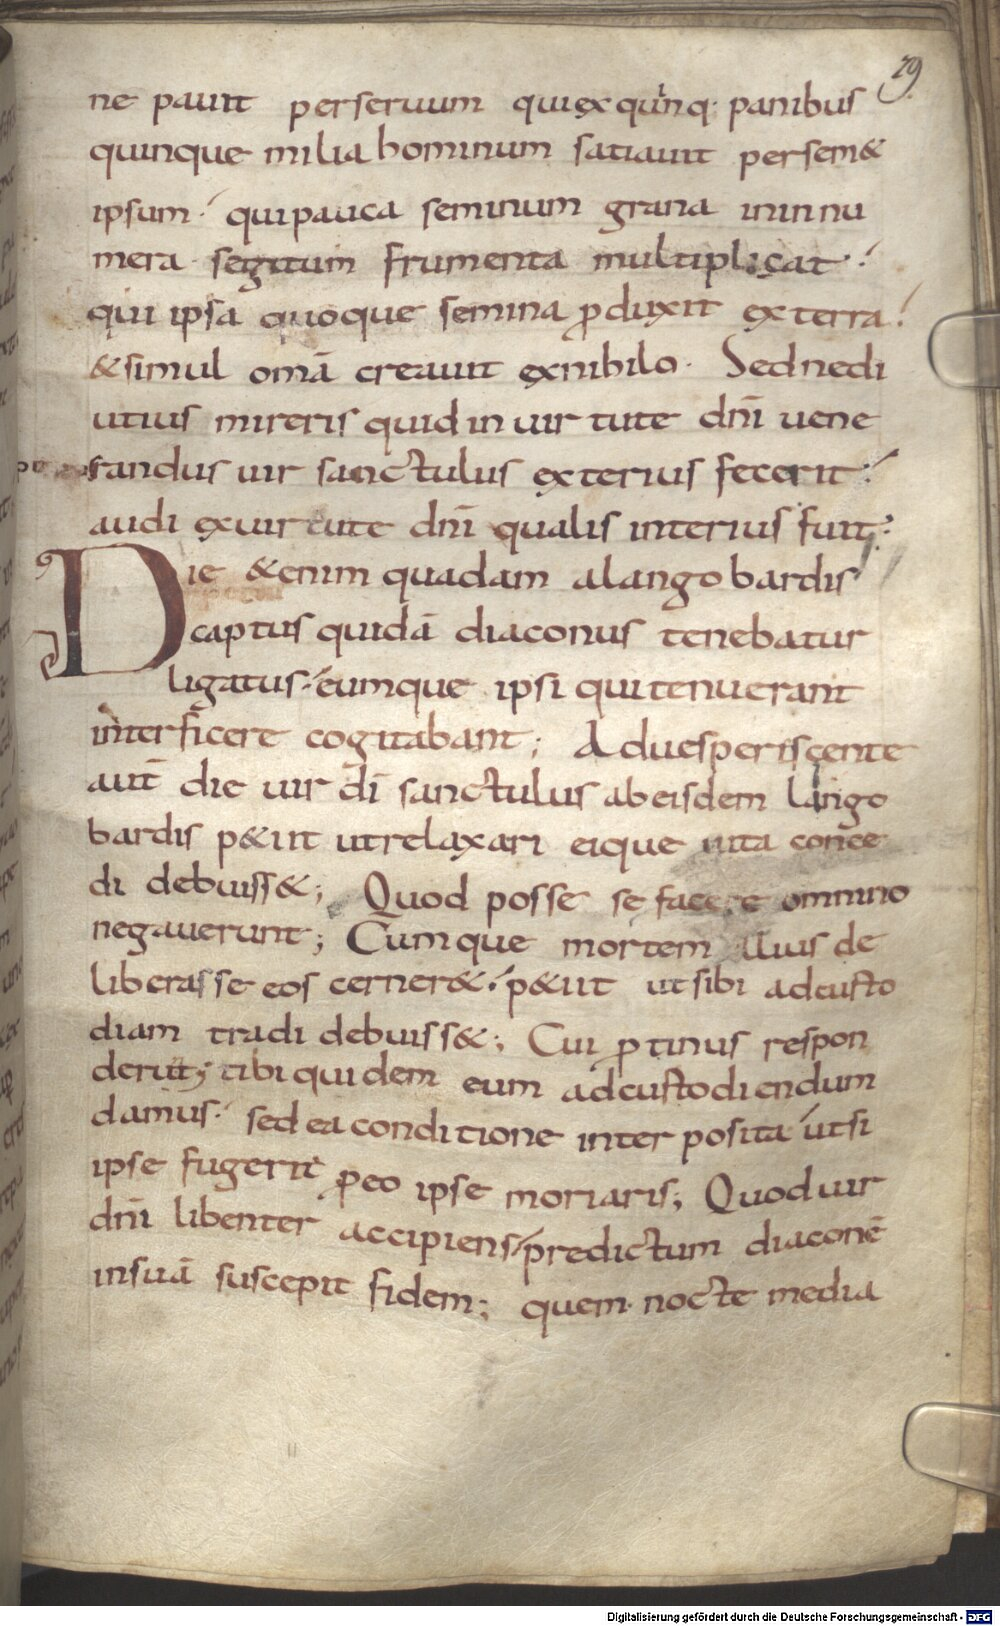 79
ne pauit perseruum quiexquinq· panibus
quinque milia hominum satiauit persem&
ipsum· quipauca seminum grana ininnu
mera segitum frumenta multiplicat·
qui ipsa quoque semina ꝓduxit exterra
&simul omā creauit exnihilo· Sednedi
utius mireris quid in uirtute dnī uene
randus uir sanctulus exterius fecerit
audi exuirtute dnī qualis interius fuit
Die &enim quadam alangobardis
captus quidā diaconus tenebatur
ligatus· eumque ipsi quitenuerant
interficere cogitabant; Aduesperiscente
aut̄ die uir dī sanctulus abeisdem lango
bardis p&iit utrelaxari eique uita conce
di debuiss&; Quod posse se facere omnino
negauerunt; Cumque mortem illius de
liberasse eos cerner&· p&iit ut sibi adcusto
diam tradi debuiss&; Cui ꝓtinus respon
derūt; tibi quidem eum adcustodiendum
damus· sed ea conditione interposita utsi
ipse fugerit ꝓeo ipse moriaris; Quoduir
dnī libenter accipiens predictum diaconē
insuā suscepit fidem; quem nocte media
Digitalisierung gefördert durch die Deutsche Forschungsgemeinschaft - DFG